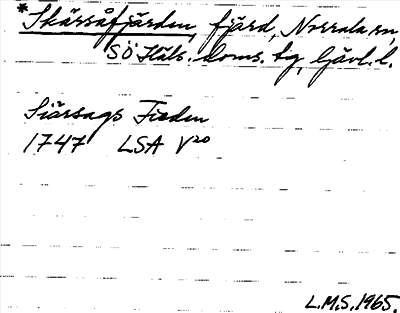 *Skärsåfjärden, fjärd, Norrala sn,
SÖ Häls. doms. tg, Gävl. l.
Siärsags Fieden
1747 LSA V20
L.M.S. 1965.